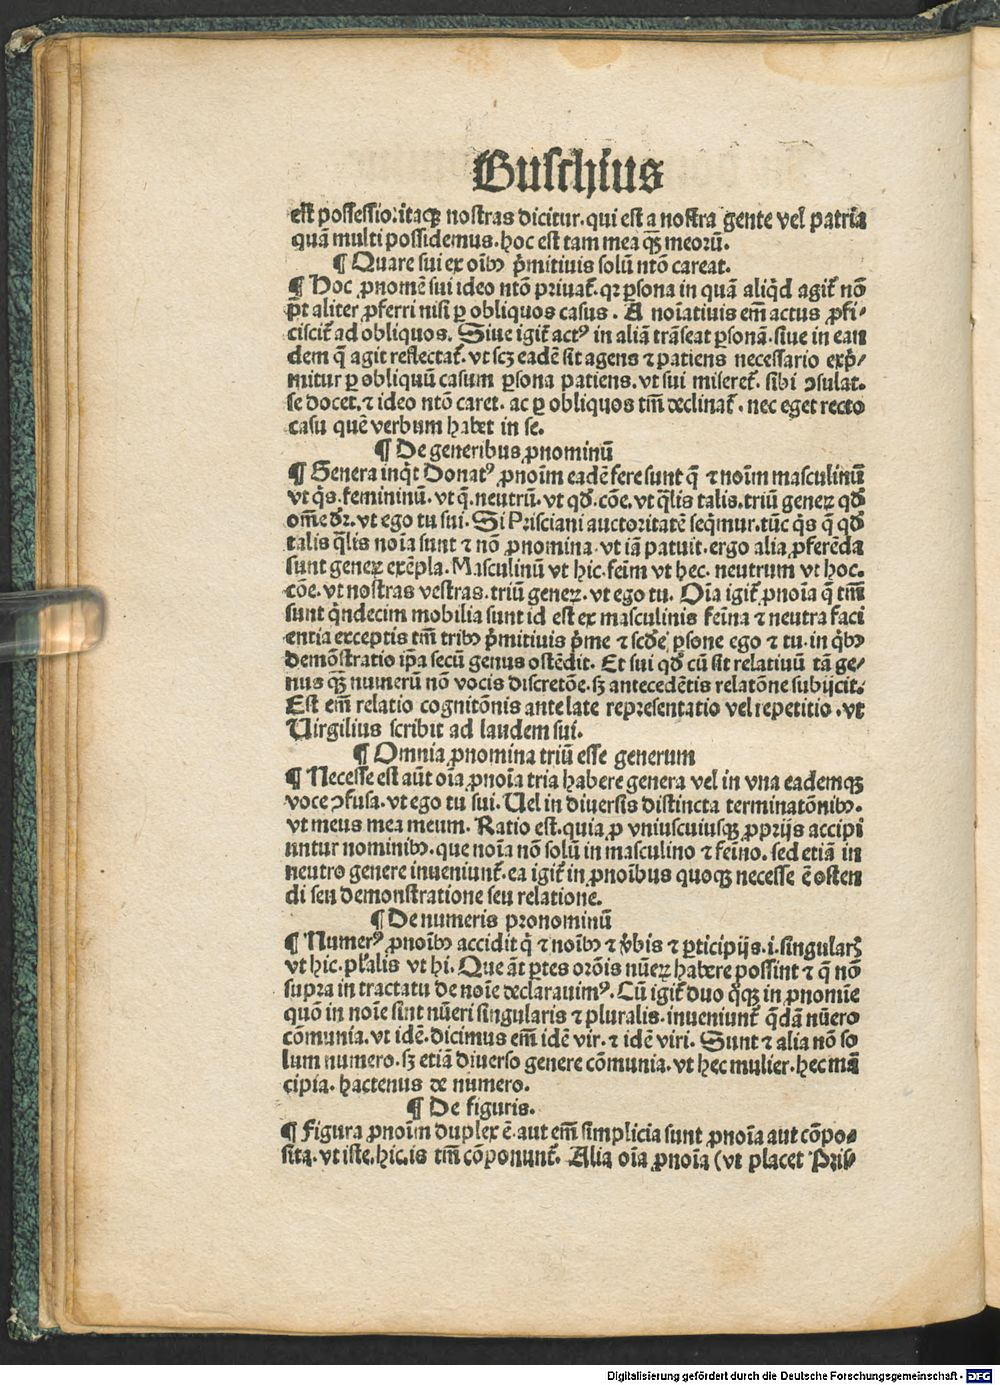 Buschius
est possessio: itaqꝫ nostras dicitur. qui est a nostra gente vel patria
quā multi possidemus. hoc est tam mea qꝫ meorū.
¶ Quare sui ex oībꝰ p̄mitiuis solū ntō careat.
¶ Hoc ꝓnomē sui ideo ntō priuat̄. qꝛ ꝑsona in quā aliq̄d agit̄ nō
pt̄ aliter ꝓferri nisi ꝑ obliquos casus. A noīatiuis em̄ actus ꝓfi⸗
ciscit̄ ad obliquos. Siue igit̄ actꝰ in aliā trāseat ꝑsonā. siue in ean
dem q̄ agit reflectat̄. vt scꝫ eadē sit agens ⁊ patiens necessario exp̄⸗
mitur ꝑ obliquū casum ꝑsona patiens. vt sui miseret̄. sibi ꝯsulat.
se docet. ⁊ ideo ntō caret. ac ꝑ obliquos tm̄ declinat̄. nec eget recto
casu quē verbum habet in se.
¶ De generibus ꝓnominū
¶ Genera inq̄t Donatꝰ ꝓnoīm eadē fere sunt q̄ ⁊ noīm masculinū
vt q̄s. femininū. vt q̄. neutrū. vt qd̄. cōe. vt q̄lis talis. triū geneꝝ qd̄
om̄e dꝛ̄. vt ego tu sui. Si Prisciani auctoritatē seq̄mur. tūc q̄s q̄ qd̄
talis q̄lis noīa sunt ⁊ nō ꝓnomina. vt iā patuit. ergo alia ꝓferēda
sunt geneꝝ exēpla. Masculinū vt hic. feīm vt hec. neutrum vt hoc.
cōe. vt nostras vestras. triū geneꝝ. vt ego tu. Oīa igit̄ ꝓnoīa q̄ tm̄
sunt q̄ndecim mobilia sunt id est ex masculinis feīna ⁊ neutra faci
entia exceptis tm̄ tribꝰ p̄mitiuis p̄me ⁊ scd̄e ꝑsone ego ⁊ tu. in q̄bꝰ
demōstratio ip̄a secū genus ostēdit. Et sui qd̄ cū sit relatiuū tā ge⸗
nus qꝫ numerū nō vocis discretōe. sꝫ antecedētis relatōne subijcit.
Est em̄ relatio cognitōnis antelate representatio vel repetitio. vt
Virgilius scribit ad laudem sui.
¶ Omnia ꝓnomina triū esse generum
¶ Necesse est aūt oīa ꝓnoīa tria habere genera vel in vna eademqꝫ
voce ꝯfusa. vt ego tu sui. Uel in diuersis distincta terminatōnibꝰ.
vt meus mea meum. Ratio est. quia ꝓ vniuscuiusqꝫ ꝓprijs accipi
untur nominibꝰ. que noīa nō solū in masculino ⁊ feīno. sed etiā in
neutro genere inueniunt̄. ea igit̄ in ꝓnoībus quoqꝫ necesse ē osten
di seu demonstratione seu relatione.
¶ De numeris pronominū
¶ Numerꝰ ꝓnoībꝰ accidit q̄ ⁊ noībꝰ ⁊ v̄bis ⁊ ꝑticipijs. i. singularꝭ
vt hic. pl̄alis vt hi. Que āt ꝑtes orōis nūeꝝ habere possint ⁊ q̄ nō
supra in tractatu de noīe declarauimꝰ. Cū igit̄ duo q̄qꝫ in ꝓnomīe
quō in noīe sint nūeri singularis ⁊ pluralis. inueniunt̄ q̄dā nūero
cōmunia. vt idē. dicimus em̄ idē vir. ⁊ idē viri. Sunt ⁊ alia nō so
lum numero. sꝫ etiā diuerso genere cōmunia. vt hec mulier. hec mā
cipia. hactenus de numero.
¶ De figuris.
¶ Figura ꝓnoīm duplex ē. aut em̄ simplicia sunt ꝓnoīa aut cōpo⸗
sita. vt iste. hic. is tm̄ cōponunt̄. Alia oīa ꝓnoīa (vt placet Pris⸗
Digitalisierung gefördert durch die Deutsche Forschungsgemeinschaft - DFG